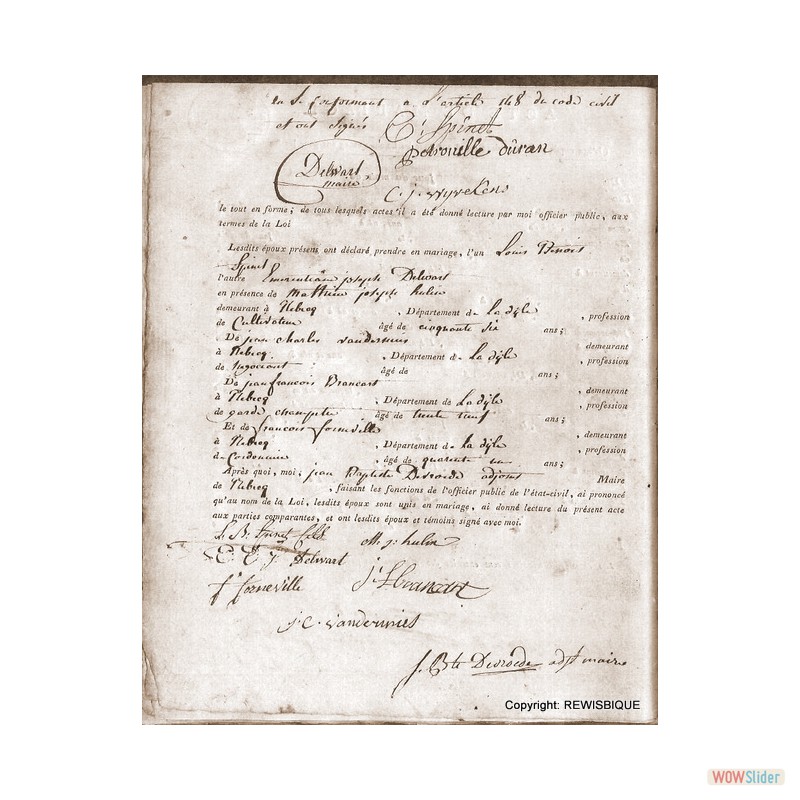 en se conformant a l'article 148 du code civil
et ont signés C. J. Spinet
petronille duran
Delwart
maire
C. j. wyvekens
le tout en forme; de tous lesquels actes il a été donné lecture par moi officier public, aux
termes de la Loi
Lesdits époux présens ont déclaré prendre en mariage, l'un Louis Benoit
Spinet
l'autre Emerentiane joseph Delwart
en présence de Matthieu joseph hulin
demeurant à Rebecq , Département de La dyle , profession
de Cultivateur âgé de cinquante six ans;
De jean charles vanderniès demeurant
à Rebecq , Département de La dyle , profession
de negociant âgé de ans;
De jean francois Brancart , demeurant
à Rebecq , Département de La dyle , profession
de garde champetre âgé de trente neuf ans;
Et de francois forneville , demeurant
à Rebecq , Département de La dyle , profession
de Cordonnier , âgé de quarente un ans;
Après quoi, moi, jean Baptiste Desroede adjoint Maire
de Rebecq , faisant les fonctions de l'officier public de l'état-civil, ai prononcé
qu'au nom de la Loi, lesdits époux sont unis en mariage, ai donné lecture du présent acte
aux parties comparantes, et ont lesdits époux et témoins signé avec moi.
L. B. Spinet M. j: hulin
E. J Delwart
f forneville j: f Brancart
j. C. Vanderniès
J. Bte Desroede adjt maire
Copyright: REWISBIQUE
WOWSlider